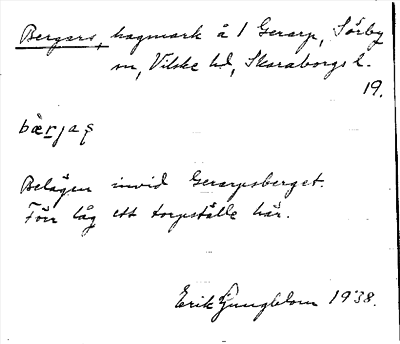 Bergars, hagmark å 1 Gerarp, Sörby
sn, Vilske hd, Skaraborgs l.
19.
bærjas
Belägen invid Gerarpsberget.
Förr låg ett torpställe här.
Erik Ljungblom 1938.